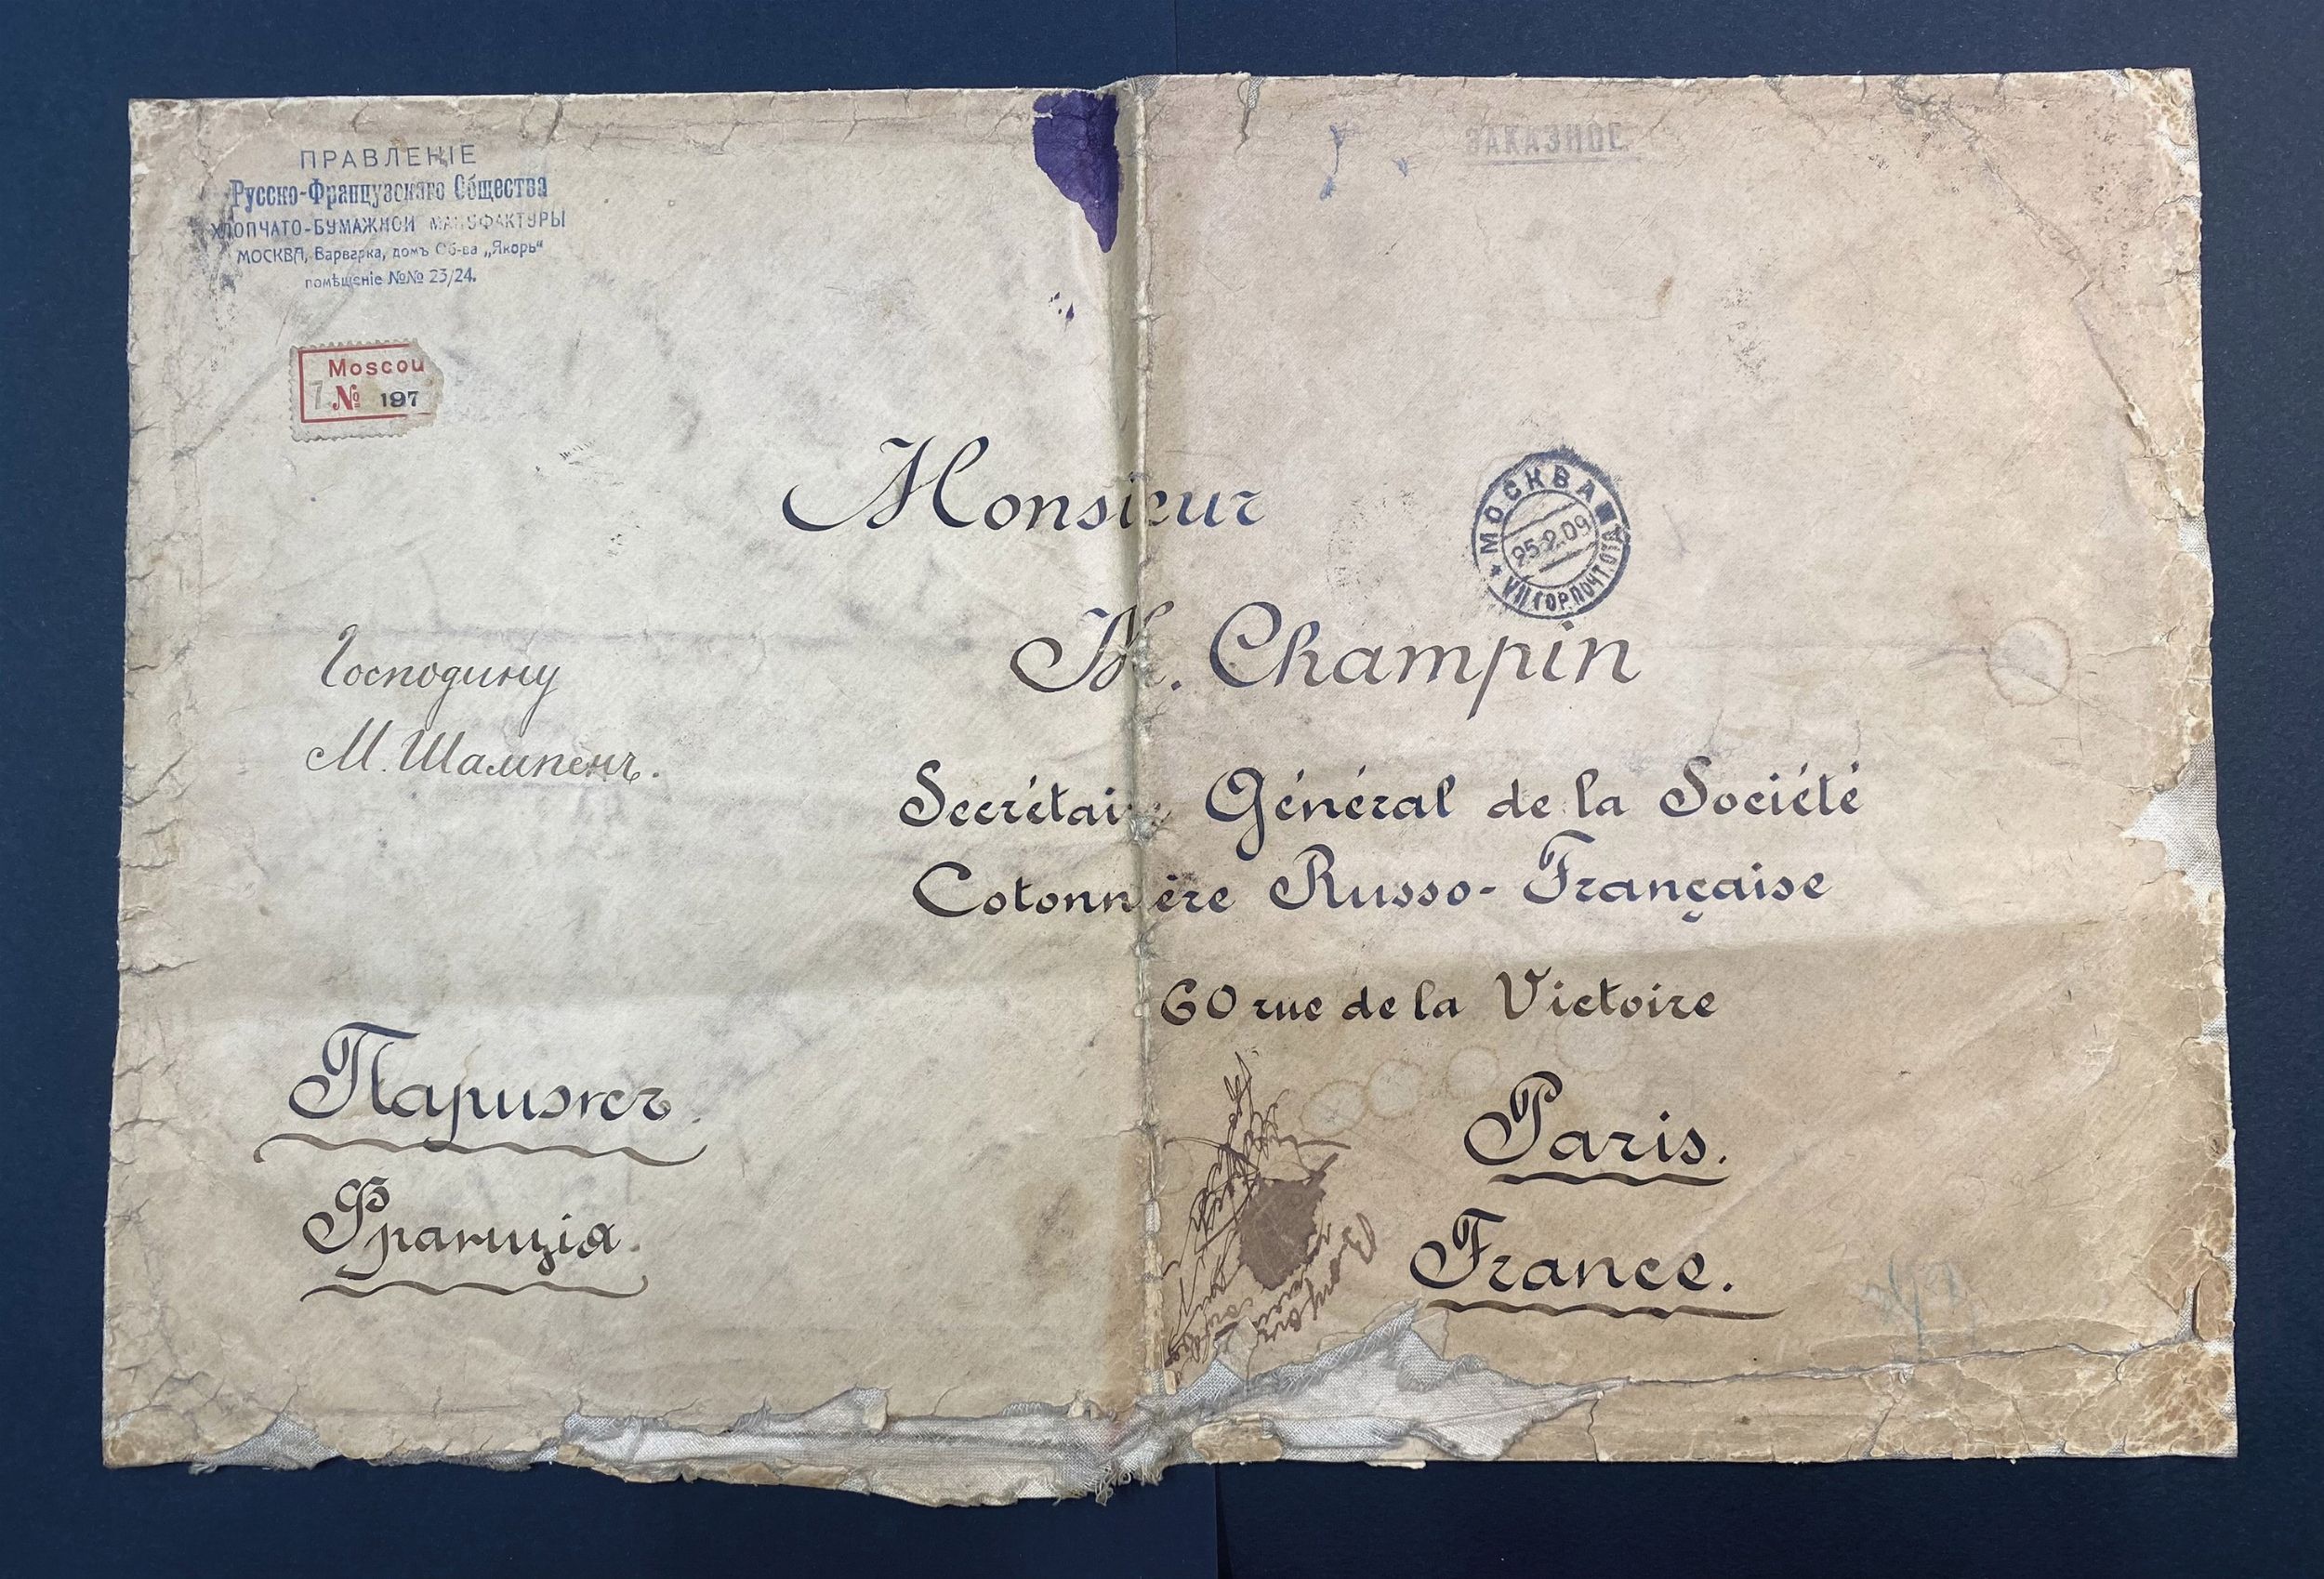 ПРАВЛЕНІЕ
Русско-Французскаго Общества
ХЛОПЧАТО-БУМАЖНОЙ МАНУФАКТУРЫ
МОСКВА, Варварка, домъ Об-ва „Якорь“
помѣщеніе №№ 23/24.
ЗАКАЗНОЕ.
Moscou
7. № 197
МОСКВА
25.2.09
VII ГОР. ПОЧТ. ОТД.
Monsieur
Champin
Господину
М. Шампенъ.
Secrétaire Général de la Société
Cotonnière Russo-Française
60 rue de la Victoire
Парижъ.
Paris.
Франція.
France.